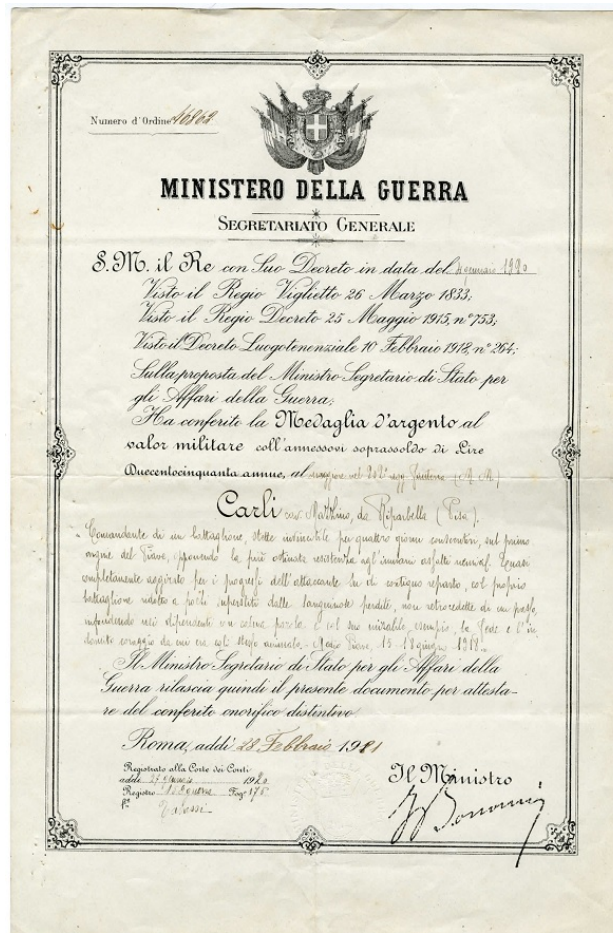 Numero d'Ordine 16862
MINISTERO DELLA GUERRA
SEGRETARIATO GENERALE
S. M. il Re con Suo Decreto in data del gennaio 1920
Visto il Regio Viglietto 26 Marzo 1833;
Visto il Regio Decreto 25 Maggio 1915, n° 753;
Visto il Decreto Luogotenenziale 10 Febbraio 1918, n° 264;
Sulla proposta del Ministro Segretario di Stato per
gli Affari della Guerra;
Ha conferito la Medaglia d'argento al
valor militare coll'annessovi soprassoldo di Lire
Duecentocinquanta annue, al maggiore nel 252° regg. fanteria (M. M.)
Carli cav. da Riparbella (Pisa).
Comandante di un battaglione, stette invincibile per quattro giorni consecutivi, sul primo
argine del Piave, opponendo la più ostinata resistenza agl'immani assalti nemici. Quasi
completamente aggirato per i progressi dell'attaccante in contiguo reparto, col proprio
battaglione ridotto a pochi superstiti dalle sanguinose perdite, non retrocedette di un passo,
infondendo nei dipendenti con calma parola e col suo mirabile esempio, la fede e l'in
domito coraggio da cui era egli stesso animato. Piave, 15-18 giugno 1918.
Il Ministro Segretario di Stato per gli Affari della
Guerra rilascia quindi il presente documento per attesta-
re del conferito onorifico distintivo
Roma, addì 28 Febbraio 1921
Registrato alla Corte dei Conti
addì 27 gennaio 1920
Registro Guerra Fog° 175
f°
Il Ministro
Bonomi